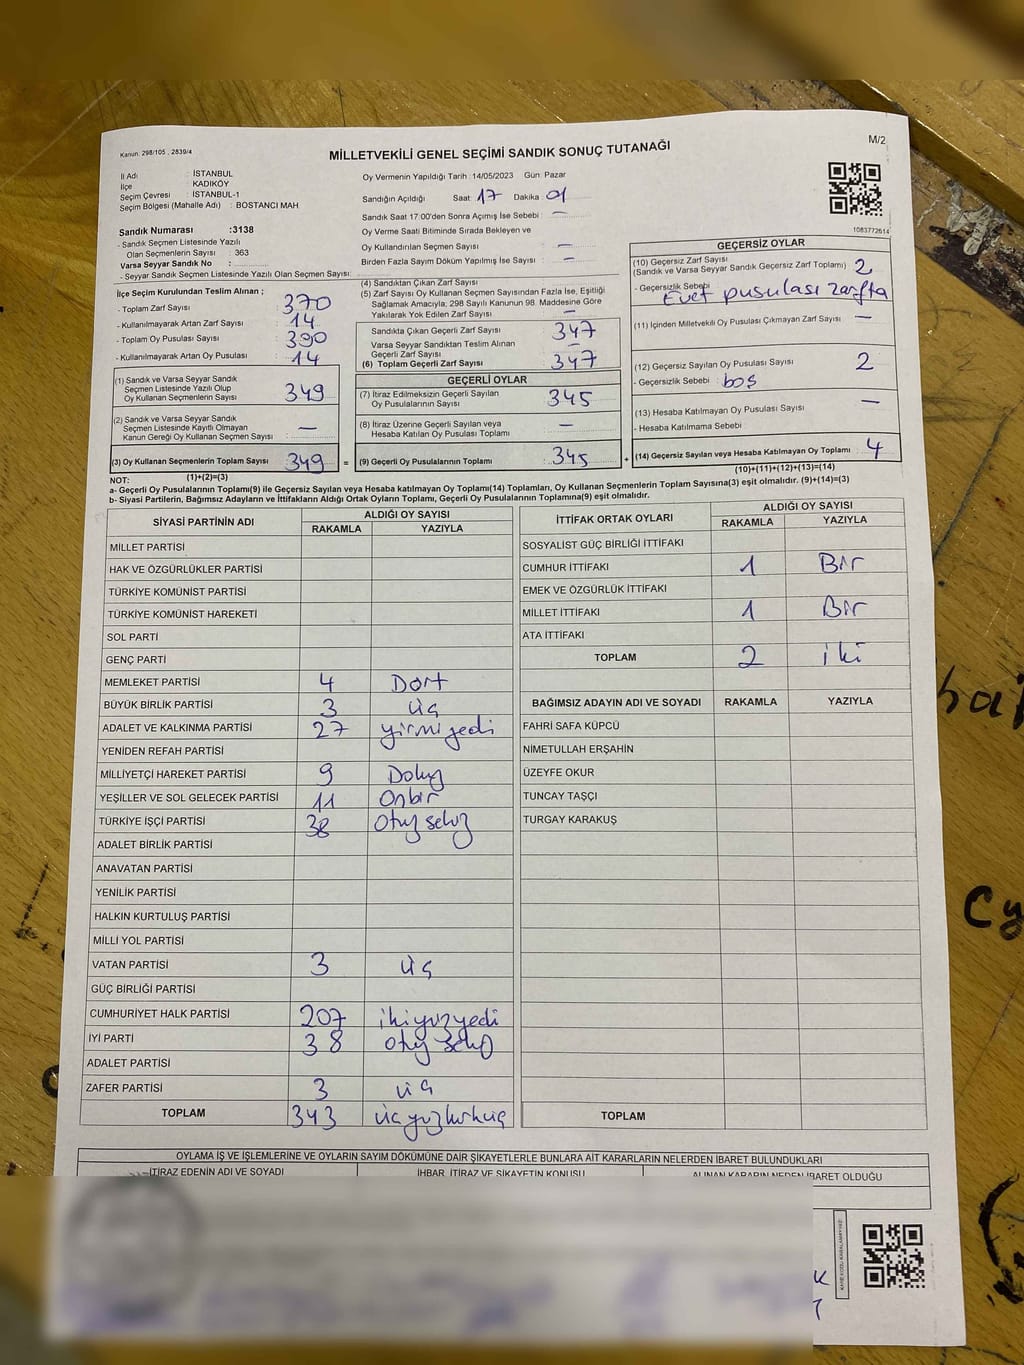 Kanun. 298/105 , 2839/4
M/2
MİLLETVEKİLİ GENEL SEÇİMİ SANDIK SONUÇ TUTANAĞI
İl Adı : İSTANBUL
İlçe : KADIKÖY
Seçim Çevresi : İSTANBUL-1
Seçim Bölgesi (Mahalle Adı) : BOSTANCI MAH
Sandık Numarası :3138
- Sandık Seçmen Listesinde Yazılı
Olan Seçmenlerin Sayısı : 363
Varsa Seyyar Sandık No :
- Seyyar Sandık Seçmen Listesinde Yazılı Olan Seçmen Sayısı:
Oy Vermenin Yapıldığı Tarih :14/05/2023 Gün: Pazar
Sandığın Açıldığı Saat: 17 Dakika: 01
Sandık Saat 17:00'den Sonra Açımış İse Sebebi : —
Oy Verme Saati Bitiminde Sırada Bekleyen ve
Oy Kullandırılan Seçmen Sayısı : —
Birden Fazla Sayım Döküm Yapılmış İse Sayısı : —
1083772614
İlçe Seçim Kurulundan Teslim Alınan ;
- Toplam Zarf Sayısı : 370
- Kullanılmayarak Artan Zarf Sayısı : 14
- Toplam Oy Pusulası Sayısı : 390
- Kullanılmayarak Artan Oy Pusulası : 14
(1) Sandık ve Varsa Seyyar Sandık
Seçmen Listesinde Yazılı Olup
Oy Kullanan Seçmenlerin Sayısı : 349
(2) Sandık ve Varsa Seyyar Sandık
Seçmen Listesinde Kayıtlı Olmayan
Kanun Gereği Oy Kullanan Seçmen Sayısı : —
(3) Oy Kullanan Seçmenlerin Toplam Sayısı : 349 =
(4) Sandıktan Çıkan Zarf Sayısı
(5) Zarf Sayısı Oy Kullanan Seçmen Sayısından Fazla İse, Eşitliği
Sağlamak Amacıyla; 298 Sayılı Kanunun 98. Maddesine Göre
Yakılarak Yok Edilen Zarf Sayısı : —
Sandıkta Çıkan Geçerli Zarf Sayısı 347
Varsa Seyyar Sandıktan Teslim Alınan
Geçerli Zarf Sayısı : —
(6) Toplam Geçerli Zarf Sayısı : 347
GEÇERLİ OYLAR
(7) İtiraz Edilmeksizin Geçerli Sayılan
Oy Pusulalarının Sayısı : 345
(8) İtiraz Üzerine Geçerli Sayılan veya
Hesaba Katılan Oy Pusulası Toplamı : —
(9) Geçerli Oy Pusulalarının Toplamı : 345 +
GEÇERSİZ OYLAR
(10) Geçersiz Zarf Sayısı
(Sandık ve Varsa Seyyar Sandık Geçersiz Zarf Toplamı) : 2
- Geçersizlik Sebebi : Evet pusulası zarfta
(11) İçinden Milletvekili Oy Pusulası Çıkmayan Zarf Sayısı : —
(12) Geçersiz Sayılan Oy Pusulası Sayısı : 2
- Geçersizlik Sebebi : boş
(13) Hesaba Katılmayan Oy Pusulası Sayısı : —
- Hesaba Katılmama Sebebi
(14) Geçersiz Sayılan veya Hesaba Katılmayan Oy Toplamı : 4
NOT: (1)+(2)=(3)
(10)+(11)+(12)+(13)=(14)
a- Geçerli Oy Pusulalarının Toplamı(9) ile Geçersiz Sayılan veya Hesaba katılmayan Oy Toplamı(14) Toplamları, Oy Kullanan Seçmenlerin Toplam Sayısına(3) eşit olmalıdır. (9)+(14)=(3)
b- Siyasi Partilerin, Bağımsız Adayların ve İttifakların Aldığı Ortak Oyların Toplamı, Geçerli Oy Pusulalarının Toplamına(9) eşit olmalıdır.
SİYASİ PARTİNİN ADI ALDIĞI OY SAYISI
RAKAMLA YAZIYLA
MİLLET PARTİSİ
HAK VE ÖZGÜRLÜKLER PARTİSİ
TÜRKİYE KOMÜNİST PARTİSİ
TÜRKİYE KOMÜNİST HAREKETİ
SOL PARTİ
GENÇ PARTİ
MEMLEKET PARTİSİ 4 Dört
BÜYÜK BİRLİK PARTİSİ 3 üç
ADALET VE KALKINMA PARTİSİ 27 yirmiyedi
YENİDEN REFAH PARTİSİ
MİLLİYETÇİ HAREKET PARTİSİ 9 Dokuz
YEŞİLLER VE SOL GELECEK PARTİSİ 11 Onbir
TÜRKİYE İŞÇİ PARTİSİ 38 Otuz sekiz
ADALET BİRLİK PARTİSİ
ANAVATAN PARTİSİ
YENİLİK PARTİSİ
HALKIN KURTULUŞ PARTİSİ
MİLLİ YOL PARTİSİ
VATAN PARTİSİ 3 üç
GÜÇ BİRLİĞİ PARTİSİ
CUMHURİYET HALK PARTİSİ 207 ikiyüzyedi
İYİ PARTİ 38 otuz sekiz
ADALET PARTİSİ
ZAFER PARTİSİ 3 üç
TOPLAM 343 üçyüzkırküç
İTTİFAK ORTAK OYLARI ALDIĞI OY SAYISI
RAKAMLA YAZIYLA
SOSYALİST GÜÇ BİRLİĞİ İTTİFAKI
CUMHUR İTTİFAKI 1 Bir
EMEK VE ÖZGÜRLÜK İTTİFAKI
MİLLET İTTİFAKI 1 Bir
ATA İTTİFAKI
TOPLAM 2 iki
BAĞIMSIZ ADAYIN ADI VE SOYADI RAKAMLA YAZIYLA
FAHRİ SAFA KÜPCÜ
NİMETULLAH ERŞAHİN
ÜZEYFE OKUR
TUNCAY TAŞÇI
TURGAY KARAKUŞ
TOPLAM
OYLAMA İŞ VE İŞLEMLERİNE VE OYLARIN SAYIM DÖKÜMÜNE DAİR ŞİKAYETLERLE BUNLARA AİT KARARLARIN NELERDEN İBARET BULUNDUKLARI
İTİRAZ EDENİN ADI VE SOYADI İHBAR, İTİRAZ VE ŞİKAYETİN KONUSU ALINAN KARARIN NEDEN İBARET OLDUĞU